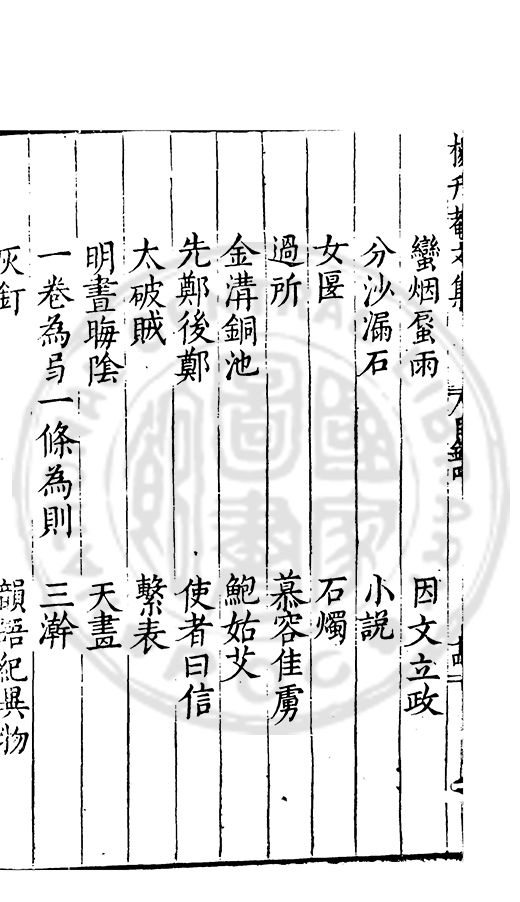 楊升菴文集
蠻烟蜑雨 因文立政
分沙漏石 小說
女匽 石燭
過所 慕容佳虜
金溝銅池 鮑姑艾
先鄭後鄭 使者曰信
太破賊 繫表
明晝晦陰 天畫
一卷為弓一條為則 三澣
灰釘 韻語紀異物